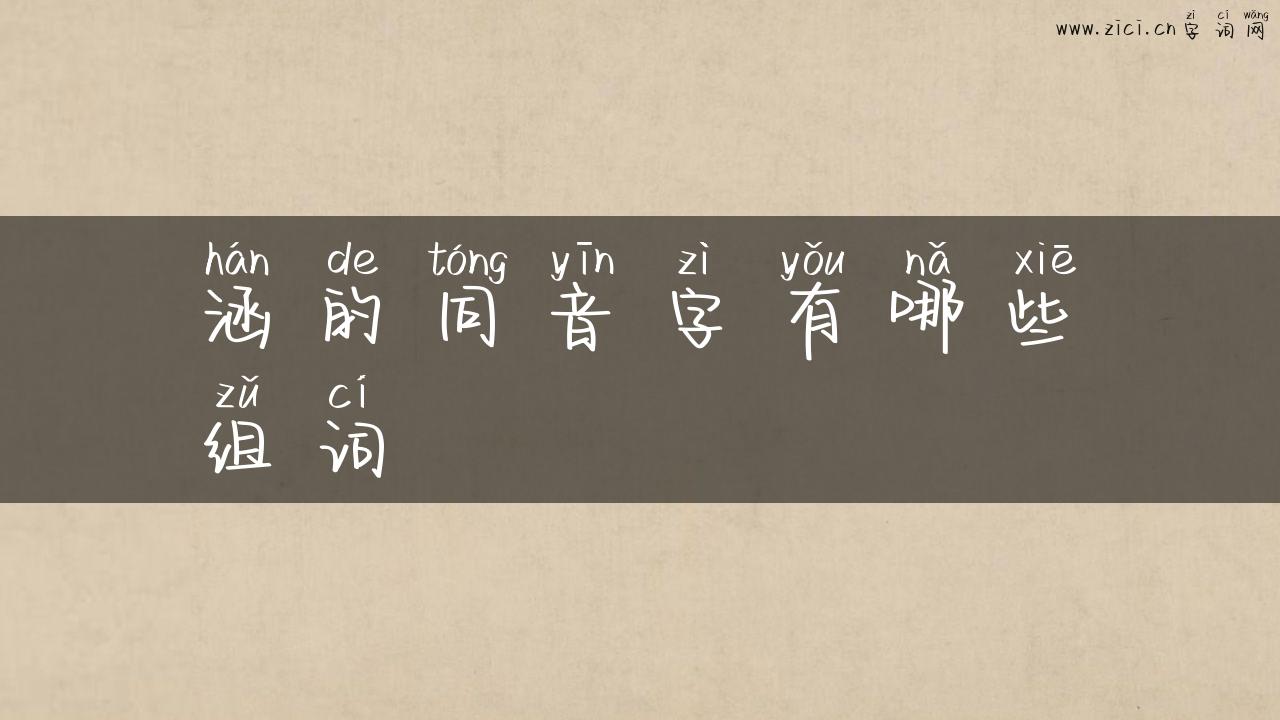 zì cí wǎng
www.zici.cn 字词网
hán de tóng yīn zì yǒu nǎ xiē
涵的同音字有哪些
zǔ cí
组词